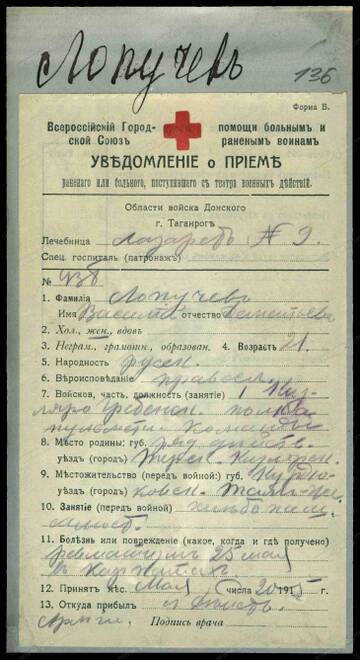 Лопучевъ
136
Форма Б.
Всероссійскій Город- помощи больнымъ и
ской Союзъ раненымъ воинамъ
УВѢДОМЛЕНІЕ о ПРІЕМѢ
раненаго или больного, поступившаго съ театра военныхъ дѣйствій.
Области войска Донского
г. Таганрогъ
Лечебница Лазаретъ № 9.
Спец. госпиталь (патронажъ)
№ 936
1. Фамилія Лопучевъ
Имя Василій отчество
2. Хол., жен., вдовъ
3. Неграм., грамотн., образован. 4. Возрастъ 21.
5. Народность русск.
6. Вѣроисповѣданіе правосл.
7. Войсков. часть, должность (занятіе) 1
Гребенск. полка
пулемет. команды
8. Мѣсто родины: губ.
уѣздъ (городъ) Терск.
9. Мѣстожительство (передъ войной): губ.
уѣздъ (городъ)
10. Занятіе (передъ войной) хлѣбопаш
11. Болѣзнь или поврежденіе (какое, когда и гдѣ получено)
ревматизмъ 25 мая
въ Карпатахъ
12. Принятъ мѣс. Мая числа 20 1915 г.
13. Откуда прибылъ
Подпись врача